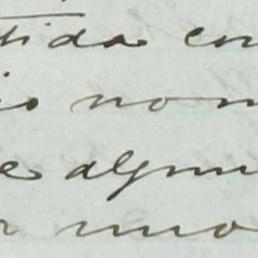 tida en
io no n
e algun
r uno